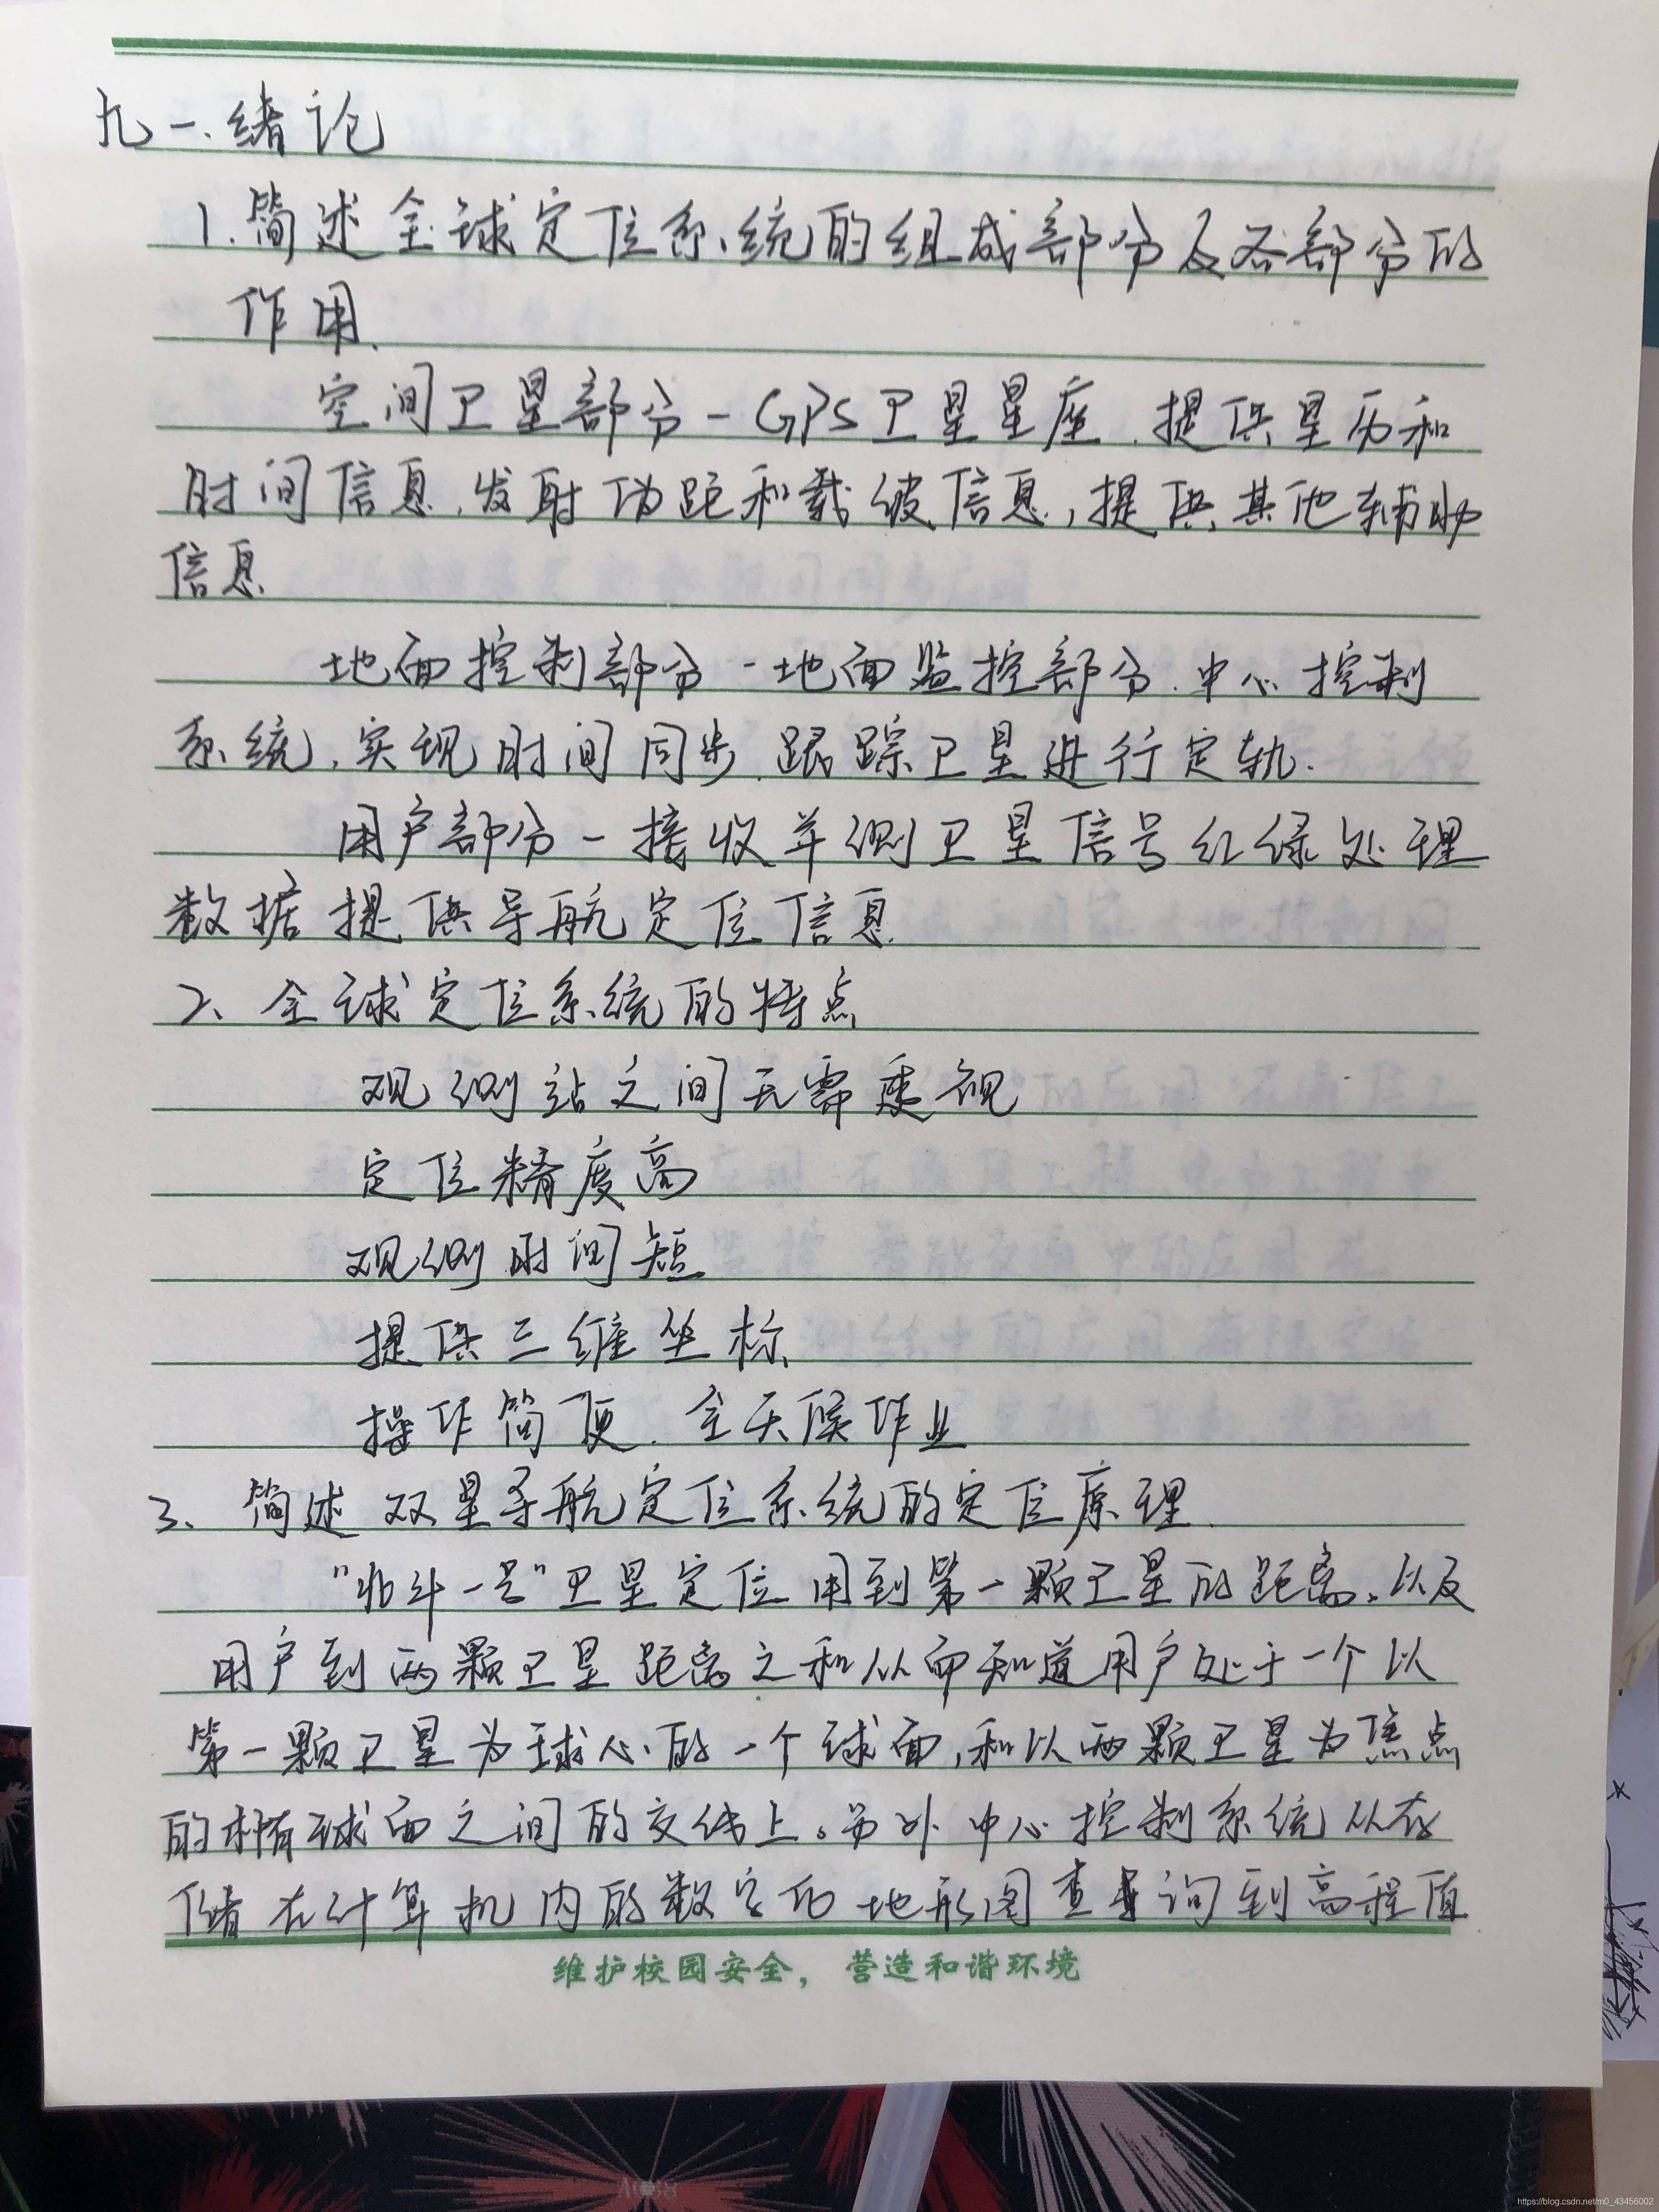 九一.绪论
1.简述全球定位系统的组成部分及各部分的
作用.
空间卫星部分-GPS卫星星座.提供星历和
时间信息.发射伪距和载波信息,提供其他辅助
信息
地面控制部分-地面监控部分.中心控制
系统.实现时间同步.跟踪卫星进行定轨.
用户部分-接收并测卫星信号 处理
数据提供导航定位信息
2、全球定位系统的特点
观测站之间无需通视
定位精度高
观测时间短
提供三维坐标
操作简便.全天候作业
3、简述双星导航定位系统的定位原理.
"北斗一号"卫星定位用到第一颗卫星的距离。以及
用户到两颗卫星距离之和从而知道用户处于一个以
第一颗卫星为球心的一个球面,和以两颗卫星为焦点
的椭球面之间的交线上。另外中心控制系统从存
储在计算机内的数字化地形图查寻询到高程值
维护校园安全，营造和谐环境
https://blog.csdn.net/m0_43456002